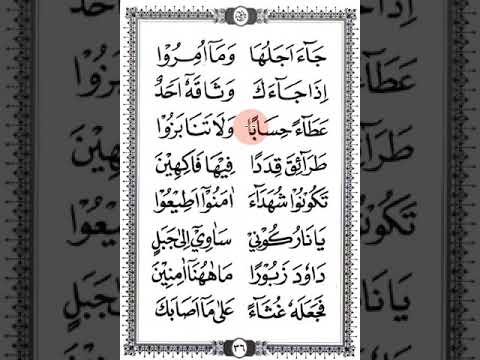 جَآءَ اَجَلُهَا وَمَآ اُمِرُوْا
اِذَا جَآءَكَ وَثَاقَهٗٓ اَحَدٌ
عَطَآءً حِسَابًا وَلَا تَنَابَزُوْا
طَرَآئِقَ قِدَدًا فِيْهَا فَاكِهِيْنَ
تَكُوْنُوْا شُهَدَآءَ اٰمَنُوْٓا اَطِيْعُوْا
يَانَارُ كُوْنِيْ سَاٰوِيْٓ اِلٰى جَبَلٍ
دَاوٗدَ زَبُوْرًا مَاهٰهُنَآ اٰمِنِيْنَ
فَجَعَلَهٗ غُثَآءً عَلٰى مَآ اَصَابَكَ
٣٦